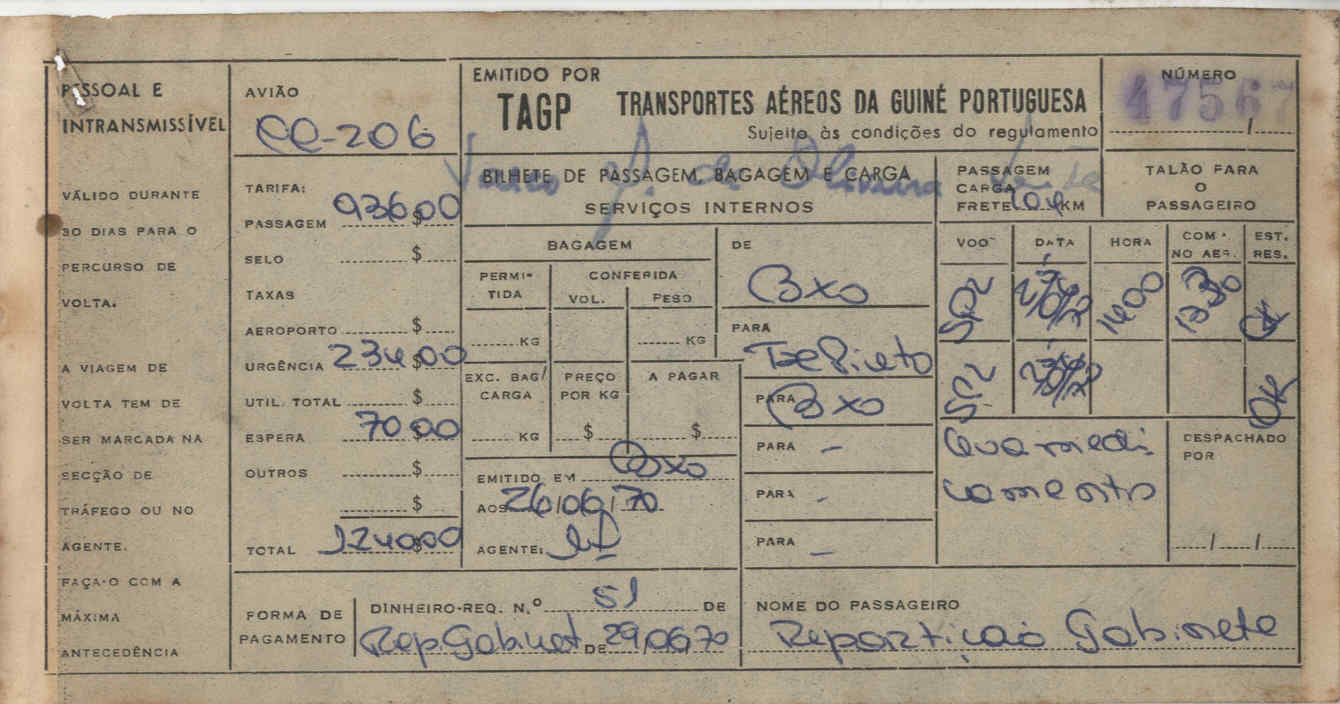 PESSOAL E
INTRANSMISSÍVEL
VÁLIDO DURANTE
30 DIAS PARA O
PERCURSO DE
VOLTA.
A VIAGEM DE
VOLTA TEM DE
SER MARCADA NA
SECÇÃO DE
TRÁFEGO OU NO
AGENTE.
FAÇA-O COM A
MÁXIMA
ANTECEDÊNCIA
AVIÃO
CC-206
TARIFA:
PASSAGEM 936$00
SELO $
TAXAS
AEROPORTO $
URGÊNCIA 234$00
UTIL. TOTAL $
ESPERA 70$00
OUTROS $
$
TOTAL 1240$00
EMITIDO POR
TAGP TRANSPORTES AÉREOS DA GUINÉ PORTUGUESA
Sujeito às condições do regulamento
NÚMERO
47567
/
BILHETE DE PASSAGEM, BAGAGEM E CARGA
SERVIÇOS INTERNOS
de Oliveira
PASSAGEM
CARGA
FRETE 104 KM
TALÃO PARA
O
PASSAGEIRO
BAGAGEM
PERMI-
TIDA
CONFERIDA
VOL. PESO
KG KG
EXC. BAG/
CARGA
PREÇO
POR KG
A PAGAR
KG $ $
EMITIDO EM Bxo
AOS 26/06/70
AGENTE:
DE
Bxo
PARA
PARA
Bxo
PARA -
PARA -
PARA -
VOO DATA HORA COM. NO AER. EST. RES.
SP2 1400 1330 OK
SP2 OK
DESPACHADO
POR
/ /
FORMA DE
PAGAMENTO
DINHEIRO-REQ. N.º 51 DE
Rep.Gabinet DE 29,06,70
NOME DO PASSAGEIRO
Repartição Gabinete